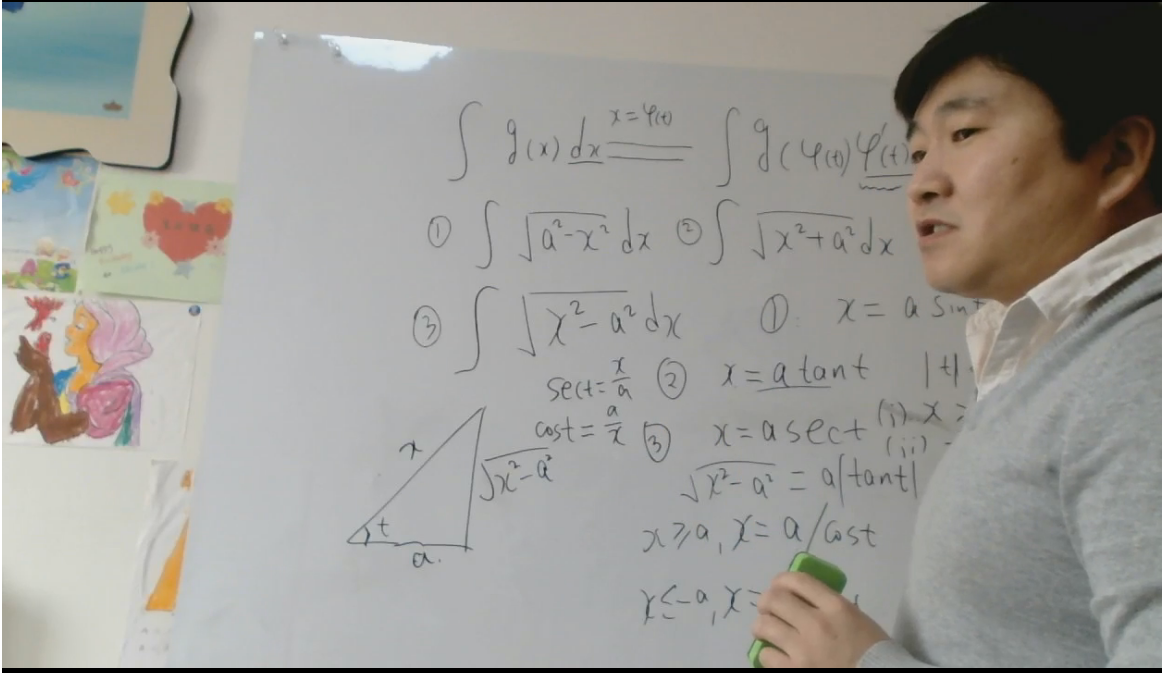 ∫ g(x) dx x=φ(t) ∫ g(φ(t)) φ'(t)
① ∫ √(a²-x²) dx ② ∫ √(x²+a²) dx
③ ∫ √(x²-a²) dx
①: x = a sint
sect = x/a
② x = a tant |t|
cost = a/x
③ x = a sect (i) x ≥
(ii)
√(x²-a²) = a|tant|
x ≥ a, x = a/cost
x ≤ -a, x =
x
√(x²-a²)
t
a.